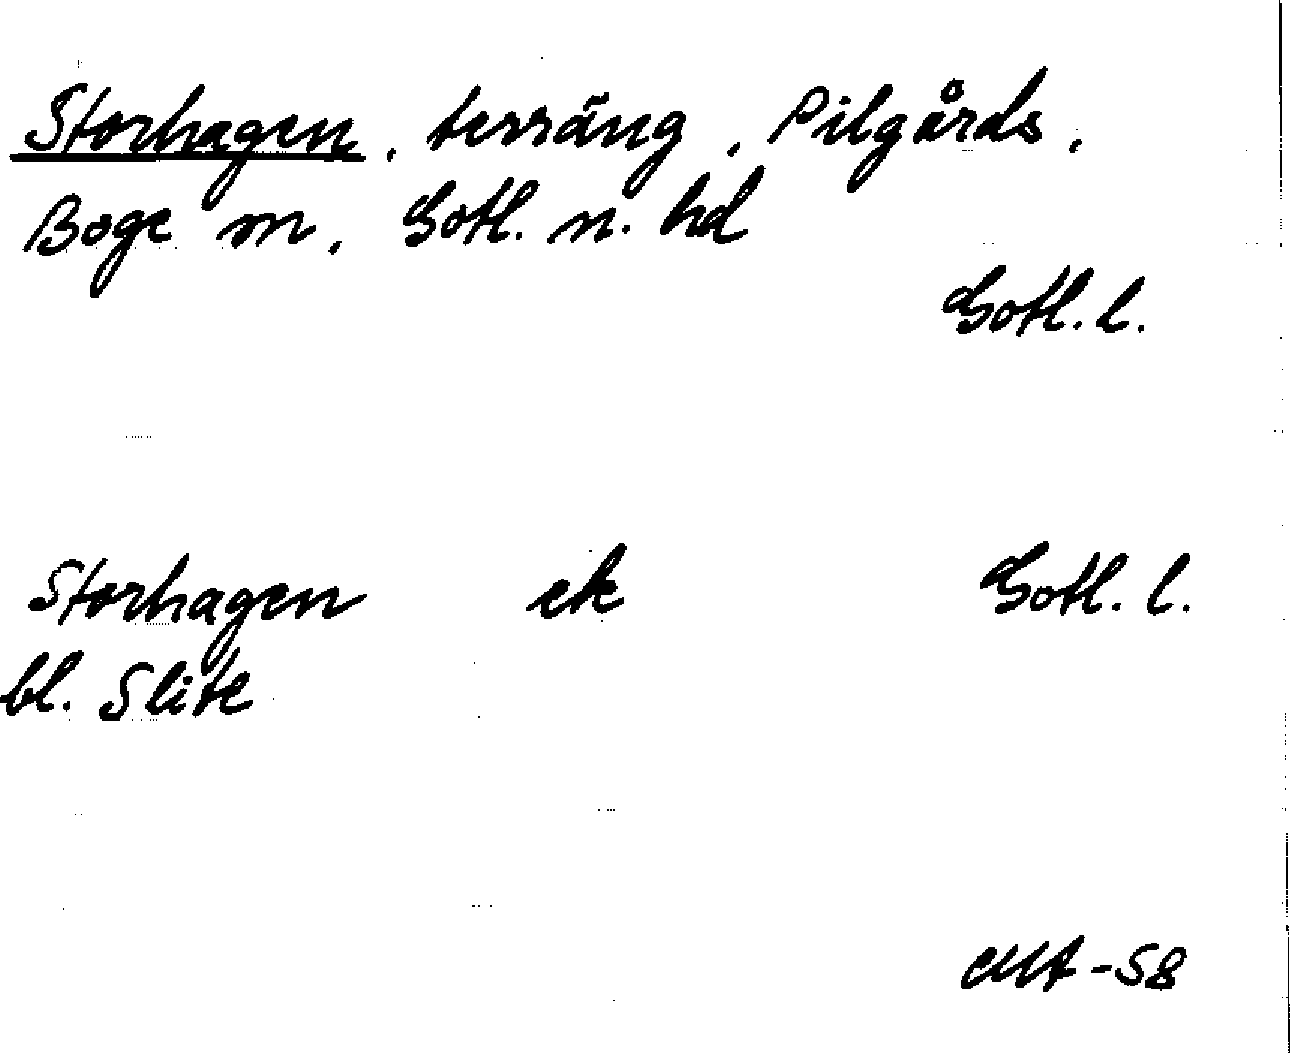 Storhagen, terräng, Pilgårds,
Boge sn, Gotl. n. hd
Gotl. l.
Storhagen ek Gotl. l.
bl. Slite
-58